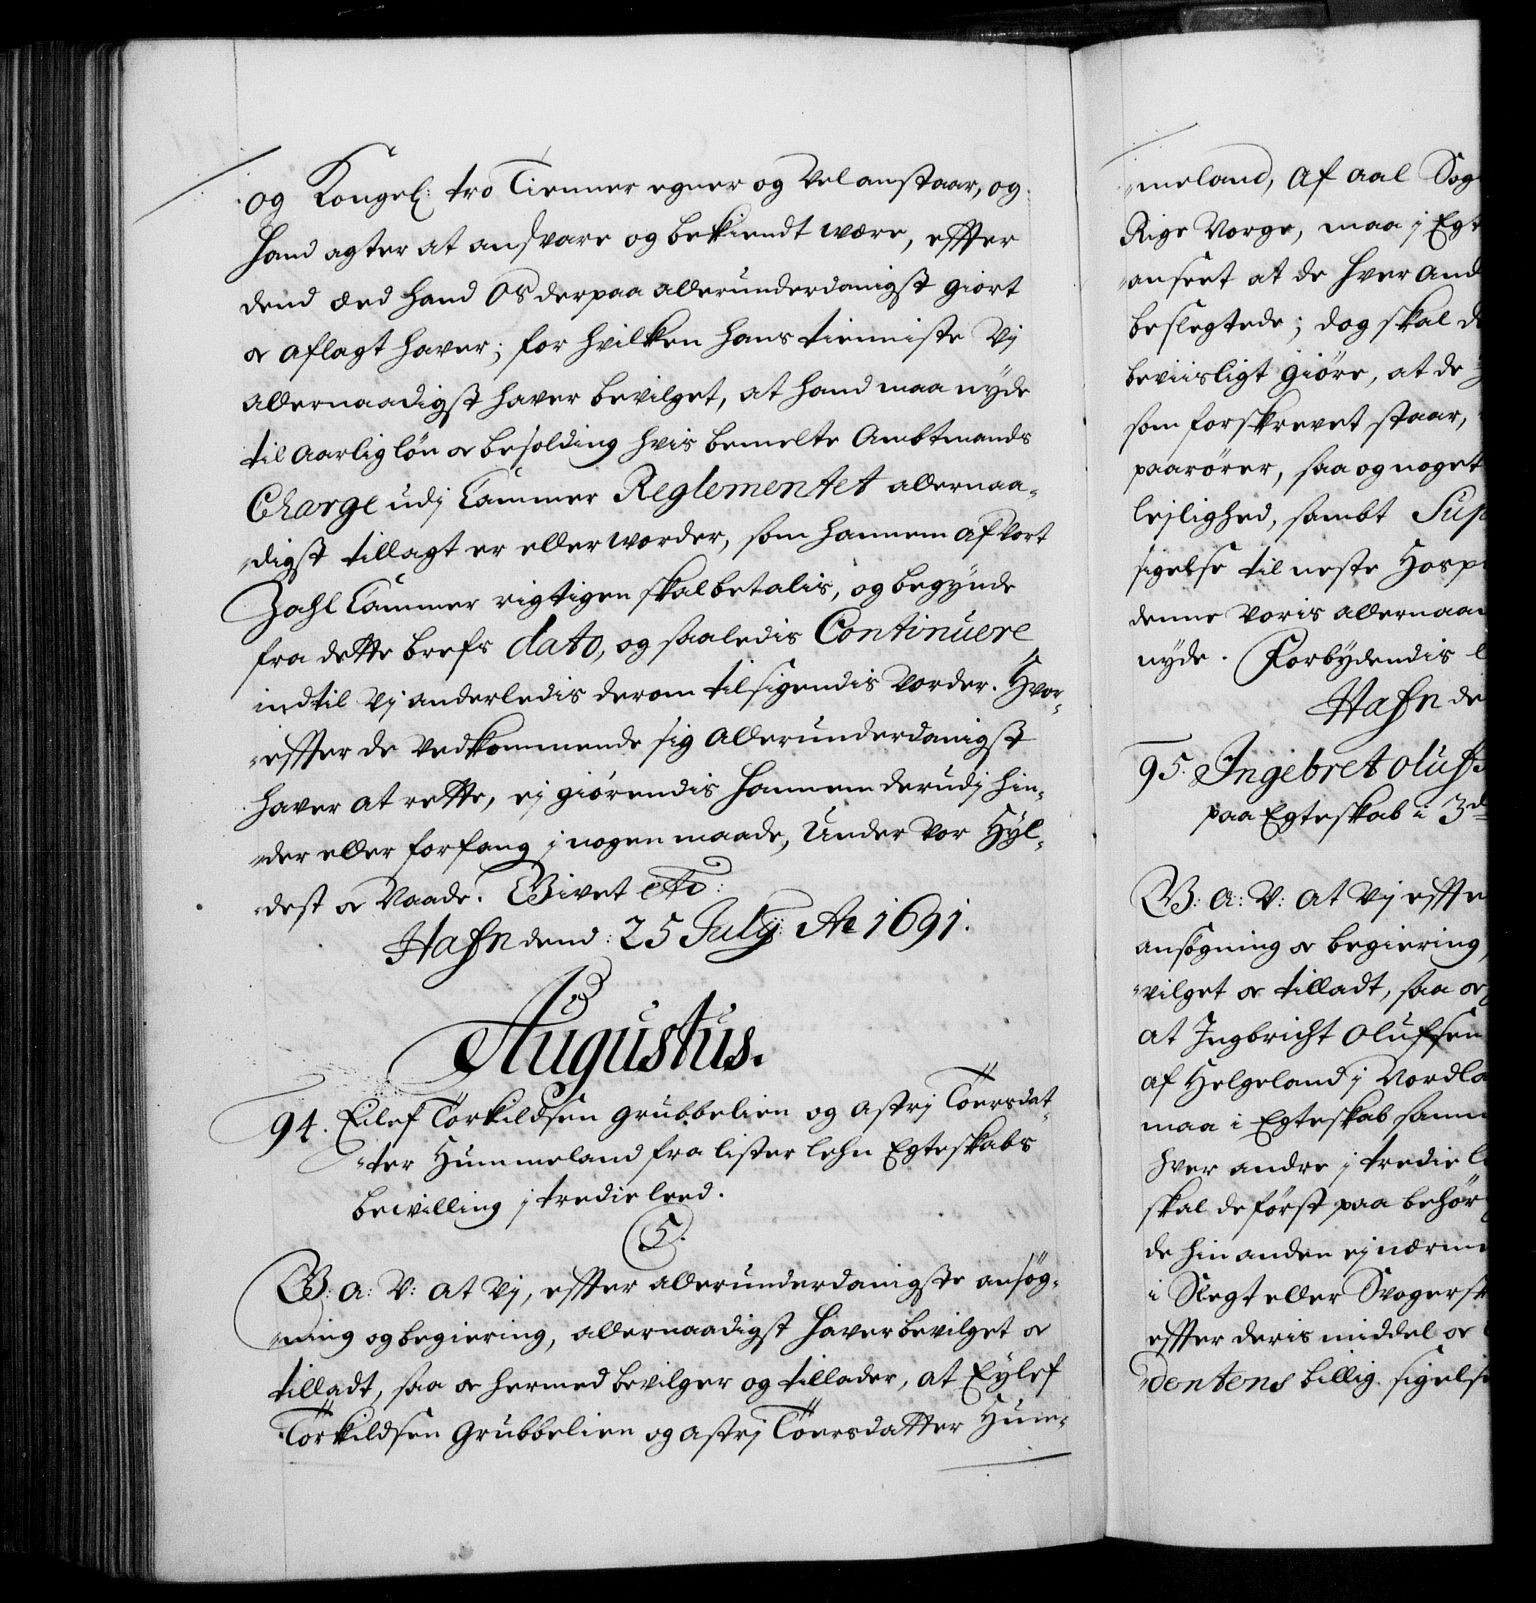 og Kongel: tro Tienner egner og Vel anstaar, og
hand agter at andsvare og bekiendt være, effter
dend Eed hand Os derpaa allerunderdanigst giort
oc aflagt haver; for hvilken hans tienniste Vj
allernaadigst haver bevilget, at hand maa nyde
til aarlig løn oc besolding hvis bemelte Ambtmands
Charge udj Cammer Reglementet allernaa-
digst tillagt er eller worder, som hannem af Vort
Zahl Cammer rigtigen skal betalis, og begynde
fra dette brefs dato, og saaledis Continuere
indtil Vj anderledis derom tilsigendis Vorder. Hvor-
effter de Vedkommende sig allerunderdanigst
haver at rette, ej giørendis hannem derudj hin-
der eller forfang j nogen maade, Under Vor Hyl-
dest oc Naade. Givet etc:
Hafn dend: 25 July: Ao 1691.
Augustus.
94. Eilef Torkildsen Grubbelien og Astrj Toersdat-
ter Hummeland fra lister lehn Egteskabs
bewilling j tredie leed.
5.
G: a: V: at Vj, effter allerunderdanigste ansøg-
ning og begiering, allernaadigst haver bevilget oc
tilladt, saa oc hermed bevilger og tillader, at Eylef
Torkildsen Grubbelien og Astrj Toersdatter Hum-
meland, af aal Sog
Rige Norge, maa j Egt
anseet at de hver and
beslegtede; dog skal d
beviisligt giøre, at de
som forskrevet staar,
paarører, saa og noget
lejlighed, sambt Sup
sigelse til neste Hosp
denne Voris allernaa
nyde. Forbydendis
Hafn de
95. Ingebret olufs
paa Egteskab i 3d
G: a: V: at Vj effte
ansøgning oc begiering,
vilget oc tilladt, saa oc
at Ingbricht Olufsen
af Helgeland j Nordla
maa i Egteskab samm
hver andre j tredie l
skal de først paa behør
de hin anden ej nærme
i Slegt eller Svogersk
effter deris middel oc
dentens billig sigelse